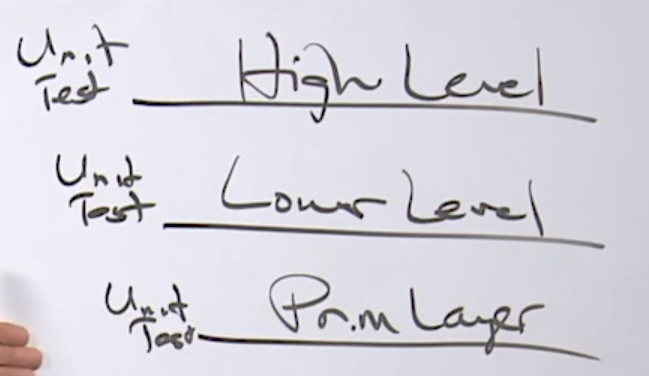 Unit
Test
High Level
Unit
Test
Lower Level
Unit
Test
Prim Layer